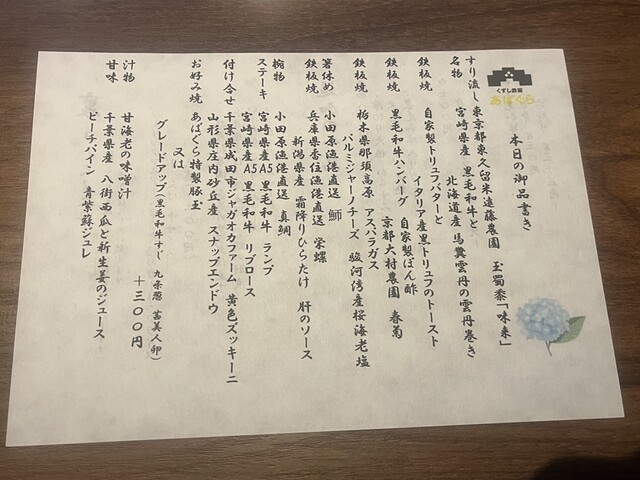 くずし鉄板
あばぐら
本日の御品書き
すり流し 東京都東久留米遠藤農園 玉蜀黍「味来」
名物 宮崎県産 黒毛和牛と
北海道産 馬糞雲丹の雲丹巻き
鉄板焼 自家製トリュフバターと
イタリア産黒トリュフのトースト
鉄板焼 黒毛和牛ハンバーグ 自家製ぽん酢
京都大村農園 春菊
鉄板焼 栃木県那須高原 アスパラガス
パルミジャーノチーズ 駿河湾産桜海老塩
箸休め 小田原漁港直送 鰤
鉄板焼 兵庫県香住漁港直送 栄螺
新潟県産 霜降りひらたけ 肝のソース
椀物 小田原漁港直送 真鯛
ステーキ 宮崎県産A5 黒毛和牛 ランプ
宮崎県産A5 黒毛和牛 リブロース
付け合せ 千葉県成田市ジャガオカファーム 黄色ズッキーニ
山形県庄内砂丘産 スナップエンドウ
お好み焼 あばぐら特製豚玉
又は
グレードアップ(黒毛和牛すじ 九条葱 茜美人卵)
+三〇〇円
汁物 甘海老の味噌汁
甘味 千葉県産 八街西瓜と新生姜のジュース
ピーチパイン 青紫蘇ジュレ